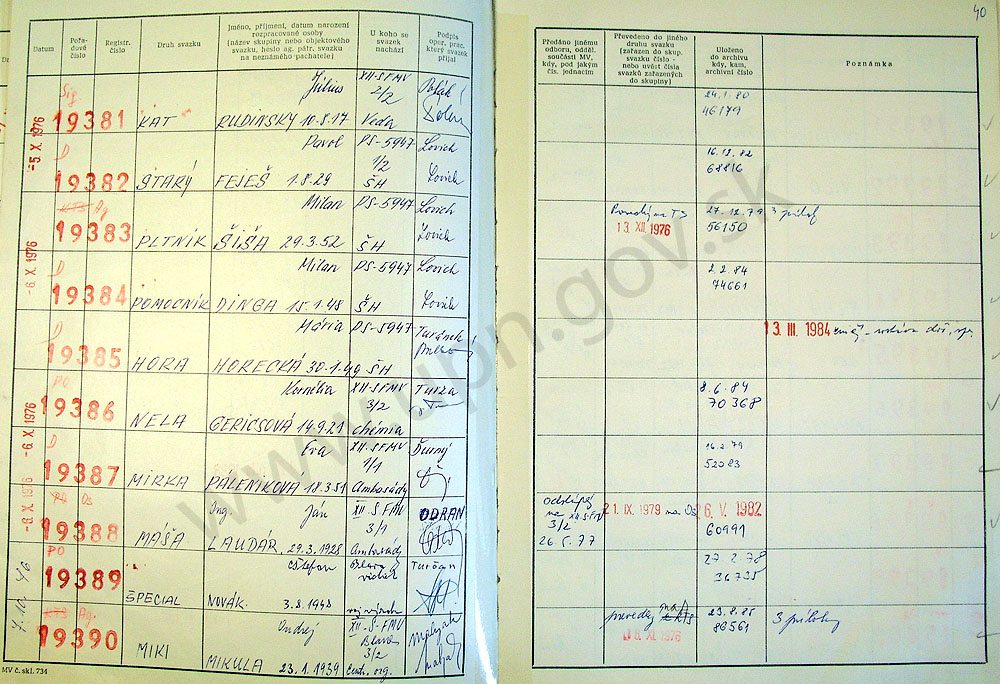 40
Datum
Pořa-
dové
číslo
Registr.
číslo
Druh svazku
Jméno, příjmení, datum narození
rozpracované osoby
(název skupiny nebo objektového
svazku, heslo ag. pátr. svazku
na neznámého pachatele)
U koho se
svazek
nachází
Podpis
oper. prac.
který svazek
přijal
Předáno jinému
odboru, odděl.
součásti MV,
kdy, pod jakým
čís. jednacím
Převedeno do jiného
druhu svazku
(zařazen do skup.
svazku číslo -
nebo uvést čísla
svazků zařazených
do skupiny)
Uloženo
do archivu
kdy, kam,
archivní číslo
Poznámka
-5. X. 1976
Sig
19381 KAT Július RUDINSKÝ 10.8.17 XII-SFMV 2/2 Veda
24.1.80
46179
D
19382 STARÝ Pavol FEJEŠ 1.8.29 PS-5947 1/2 ŠH Lovich Lovich
16.12.82
68816
-6. X. 1976
KTS Ag
19383 PLTNÍK Milan ŠIŠA 29.3.52 PS-5947 ŠH Lovich Lovich
13. XII. 1976
27.12.79 3 prílohy
56150
D
19384 POMOCNÍK Milan DINGA 15.1.48 PS-5947 ŠH Lovich Lovich
2.2.84
74661
D
19385 HORA Mária HORECKÁ 30.1.49 PS-5947 ŠH Turánek
13. III. 1984
-6. X. 1976
PO
19386 NELA Kornélia GERICSOVÁ 14.9.21 XII-SFMV 3/2 chémia Turza
8.6.84
70368
D
19387 MIRKA Eva PÁLENÍKOVÁ 18.3.51 XII.-SFMV 1/1 Ambasády Ďurný
16.2.79
52083
-6. X. 1976
Os
19388 MÁŠA Ing. Ján LAUDÁR, 29.3.1928 XII-S FMV 3/1 Ambasády ODRAN
odstúpený
na XII.SFMV
3/2
26.5.77
21. IX. 1979 na Os
6. V. 1982
60991
7.10.76
PO
19389 ŠPECIAL Štefan NOVÁK. 3.8.1948 Turčan
27.2.78
36735
KTS Ag.
19390 MIKI Ondrej MIKULA 23.1.1939 XII.-S-FMV Blava 3/2 centr. org.
29.8.85
80561
3 prílohy
MV č. skl. 734
www.upn.gov.sk